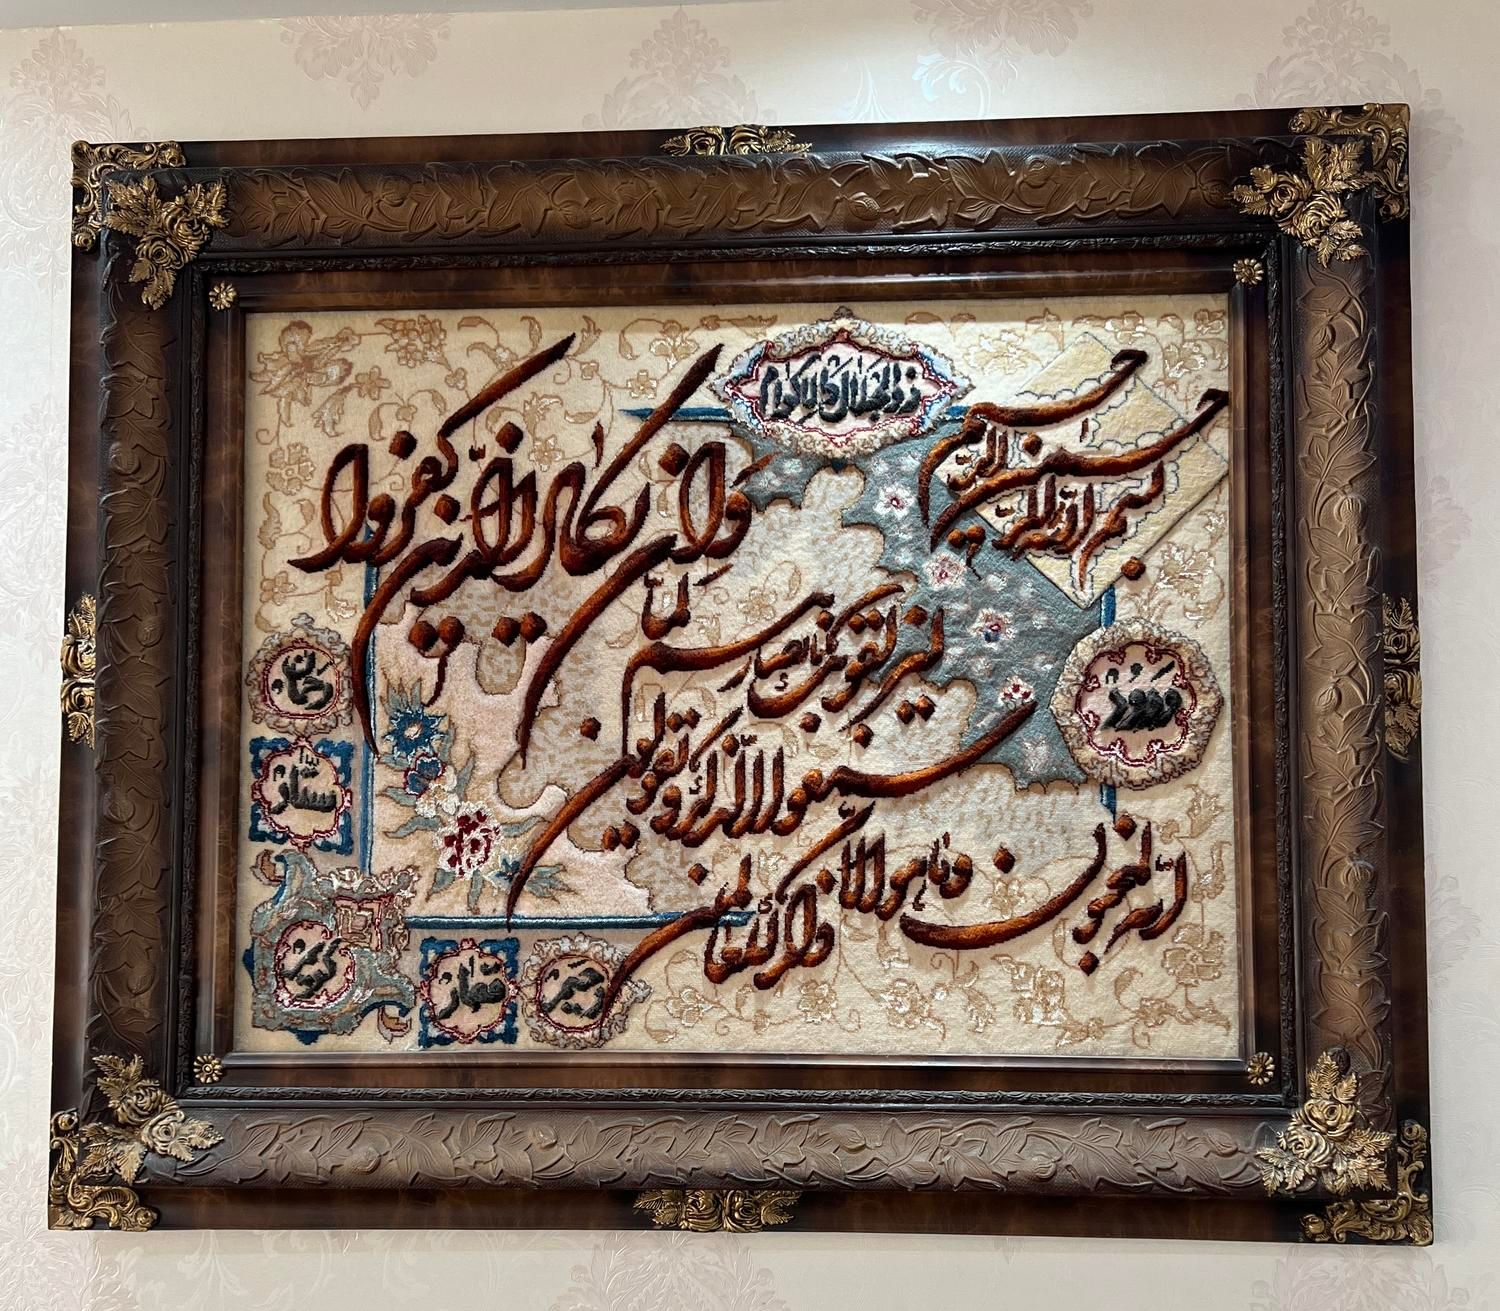 بسم الله الرحمن الرحیم
ذوالجلال والاکرام
وان یکاد الذین کفروا
لیزلقونک بابصارهم
لما
سمعوا الذکر ویقولون
انه لمجنون وما هو الا
ذکر للعالمین
رحمان
ستار
کریم
غفار
رحیم